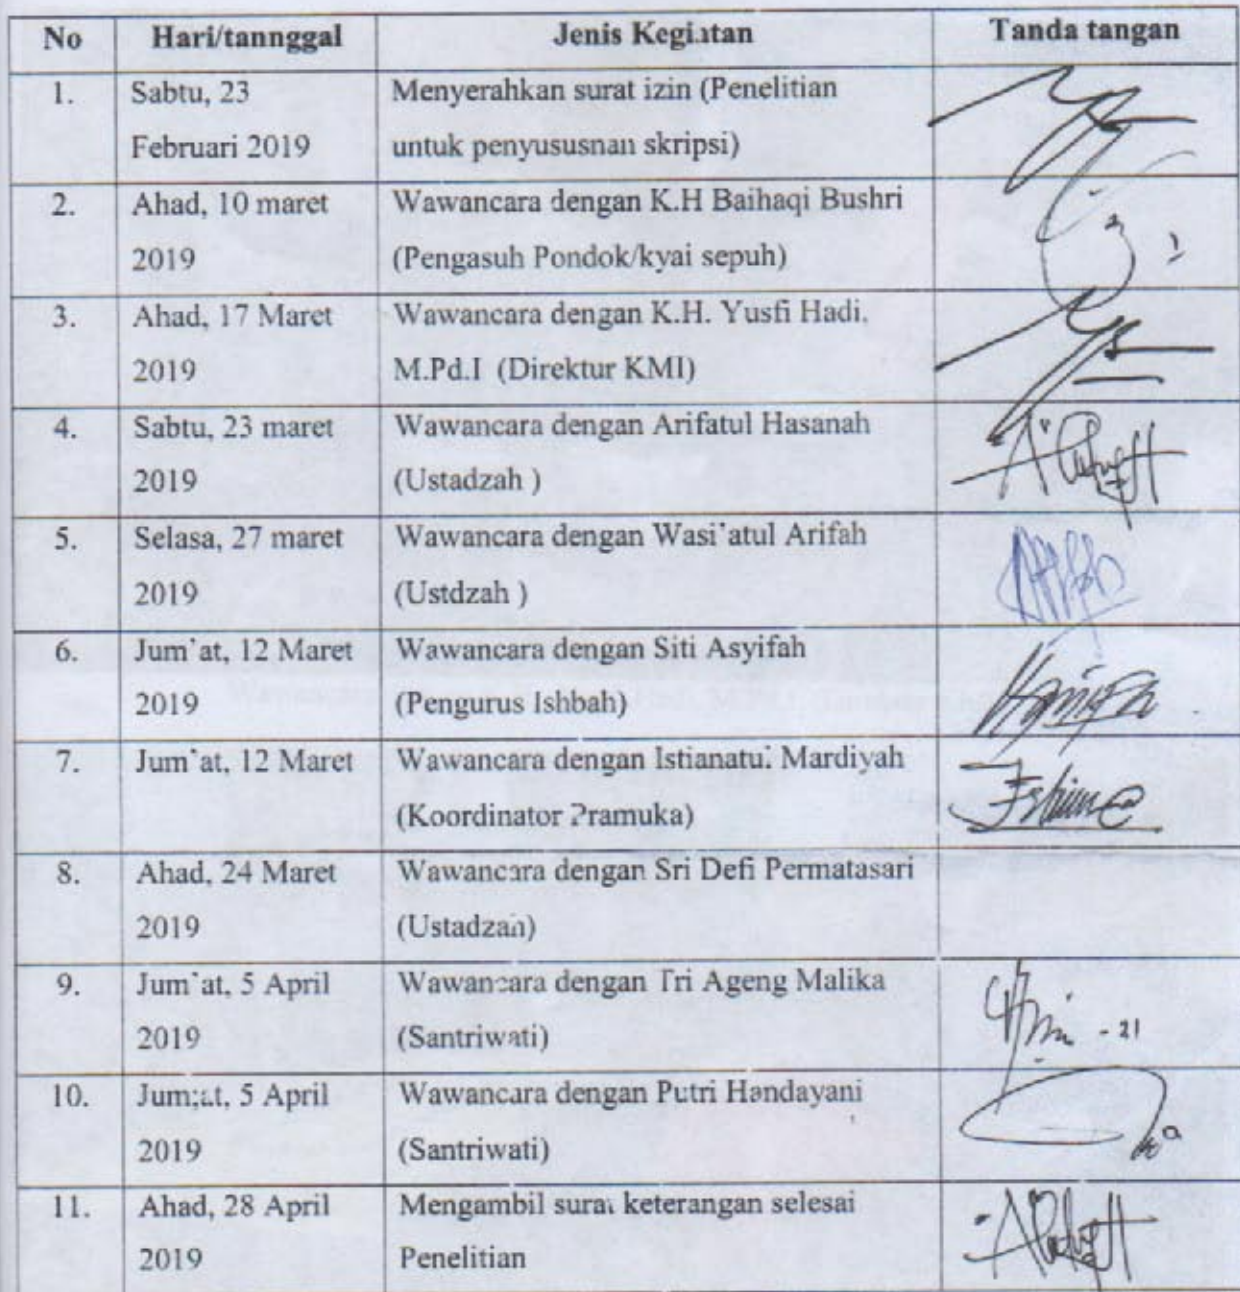 No Hari/tannggal Jenis Kegiatan Tanda tangan
1. Sabtu, 23 Menyerahkan surat izin (Penelitian
Februari 2019 untuk penyususnan skripsi)
2. Ahad, 10 maret Wawancara dengan K.H Baihaqi Bushri
2019 (Pengasuh Pondok/kyai sepuh)
3. Ahad, 17 Maret Wawancara dengan K.H. Yusfi Hadi,
2019 M.Pd.I (Direktur KMI)
4. Sabtu, 23 maret Wawancara dengan Arifatul Hasanah
2019 (Ustadzah )
5. Selasa, 27 maret Wawancara dengan Wasi'atul Arifah
2019 (Ustdzah )
6. Jum'at, 12 Maret Wawancara dengan Siti Asyifah
2019 (Pengurus Ishbah)
7. Jum'at, 12 Maret Wawancara dengan Istianatul Mardiyah
(Koordinator Pramuka)
8. Ahad, 24 Maret Wawancara dengan Sri Defi Permatasari
2019 (Ustadzah)
9. Jum'at, 5 April Wawancara dengan Tri Ageng Malika
2019 (Santriwati)
10. Jum;at, 5 April Wawancara dengan Putri Handayani
2019 (Santriwati)
11. Ahad, 28 April Mengambil surat keterangan selesai
2019 Penelitian